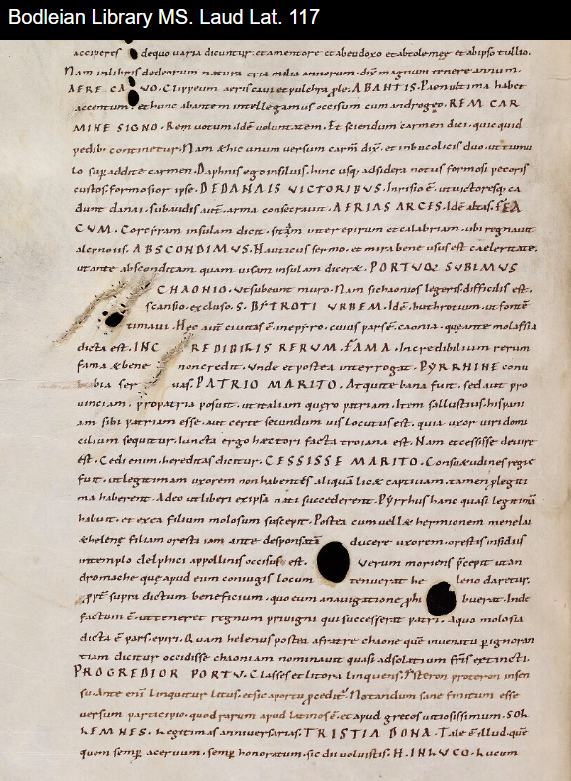 Bodleian Library MS. Laud Lat. 117
acciperes dequo varia dicuntur. et amentore et abeudoxo et abtolemeo et abipso tullio.
Nam inlibris dedeorum natura tria milia annorum. dix̄ magnum tenere annum.
AERE CAVO. Clippeum aeris cavi et pulchra ple. ABANTIS. Penultima habet
accentum. et hunc abantem intellegamus occisum cum androgeo. REM CAR
MINE SIGNO. Rem votum. Idē voluntatem. Et sciendum carmen dici. quicquid
pedibꝰ continetur. Nam & hic unum versum carm̄ dix̄. et inbucolicis duo. ut unu
lo sup addite carmen. Daphnis ego insilvis. hinc usq. ad sidera notus formosi pecoris
custos. formosior ipse. DEDANAIS VICTORIBUS. Inrisio ē. ut victoresq. ca
dunt danai. subaudis aut̄. arma consecravit. AERIAS ARCES. Idē altas. FEA
CUM. Corcyram insulam dicit. sitam inter epirum et calabriam. ubi regnavit
alcenous. ABSCONDIMUS. Nauticus sermo. et mira bene usus est caeleritate.
ut ante absconditam quam visam insulam diceræ. PORTUQ: SUBIMUS
CHAONIO. Ut subeunt muro. Nam si chaonios legeris difficilis est.
scansio. excluso. S. BYTROTI URBEM. Idē. buthrotium. ut fontē
timavi. Hec aut̄ civitas ē inepyro. cuius pars ē. caonia. que ante molassia
dicta est. INCREDIBILIS RERUM. FAMA. Incredibilium rerum
fama & bene non credit. unde et postea interrogat. PYRRHINE conu
bia ser vas. PATRIO MARITO. Atqui tebana fuit. sed aut pro
vinciam. pro patria posuit. ut italiam quero patriam. Item sallustius. hispani
am sibi patriam esse. aut certe secundum vis locutus est. quia uxor viri domi
cilium sequitur. Iuncta ergo hæctori facta troiana est. Nam et cessisse deiure
est. Cedi enim. hereditas dicitur. CESSISSE MARITO. Consuætudines regie
fuit. ut legitimam uxorem non habentes aliquā lic& captivam. tamen p legiti
ma haberent. Adeo ut liberi ex ipsa nati succederent. Pyrrhus hanc quasi legitimā
habuit. et ex ea filium molosum suscepit. Postea cum vell& hermionem menelai
& helene filiam oresta iam ante desponsatā ducere uxorem. orestis insidiis
in templo delphici appollinis occisus est. Verum moriens p̄cepit ut an
dromache que apud eum coniugis locum tenuerat he leno daretur.
ppt̄ supra dictum beneficium. quo eum anavigatione phi buerat. Inde
factum ē. ut teneret regnum privigni qui successerat patri. A quo molosia
dicta ē pars. epiri. Quam helenus postea afratre chaone quē invenatu p ignoran
tiam dicitur occidisse chaoniam nominavit quasi ad solatium fr̄is extincti.
PROGREDIOR PORTU. Classes et litora linquens. Ysteron proteron insen
su. Ante enī linquitur litus. et sic aportu p̄cedit.' Notandum sane finitum esse
versum participio. quod rarum apud latinos ē. et apud grecos vitiosissimum. SOL
LEMNES. Legitimas anniversarias. TRISTIA DONA. Tale ē illud. que
quem semp acervum. semp honoratum. sic dii voluistis. H. INLUCO. Lucum